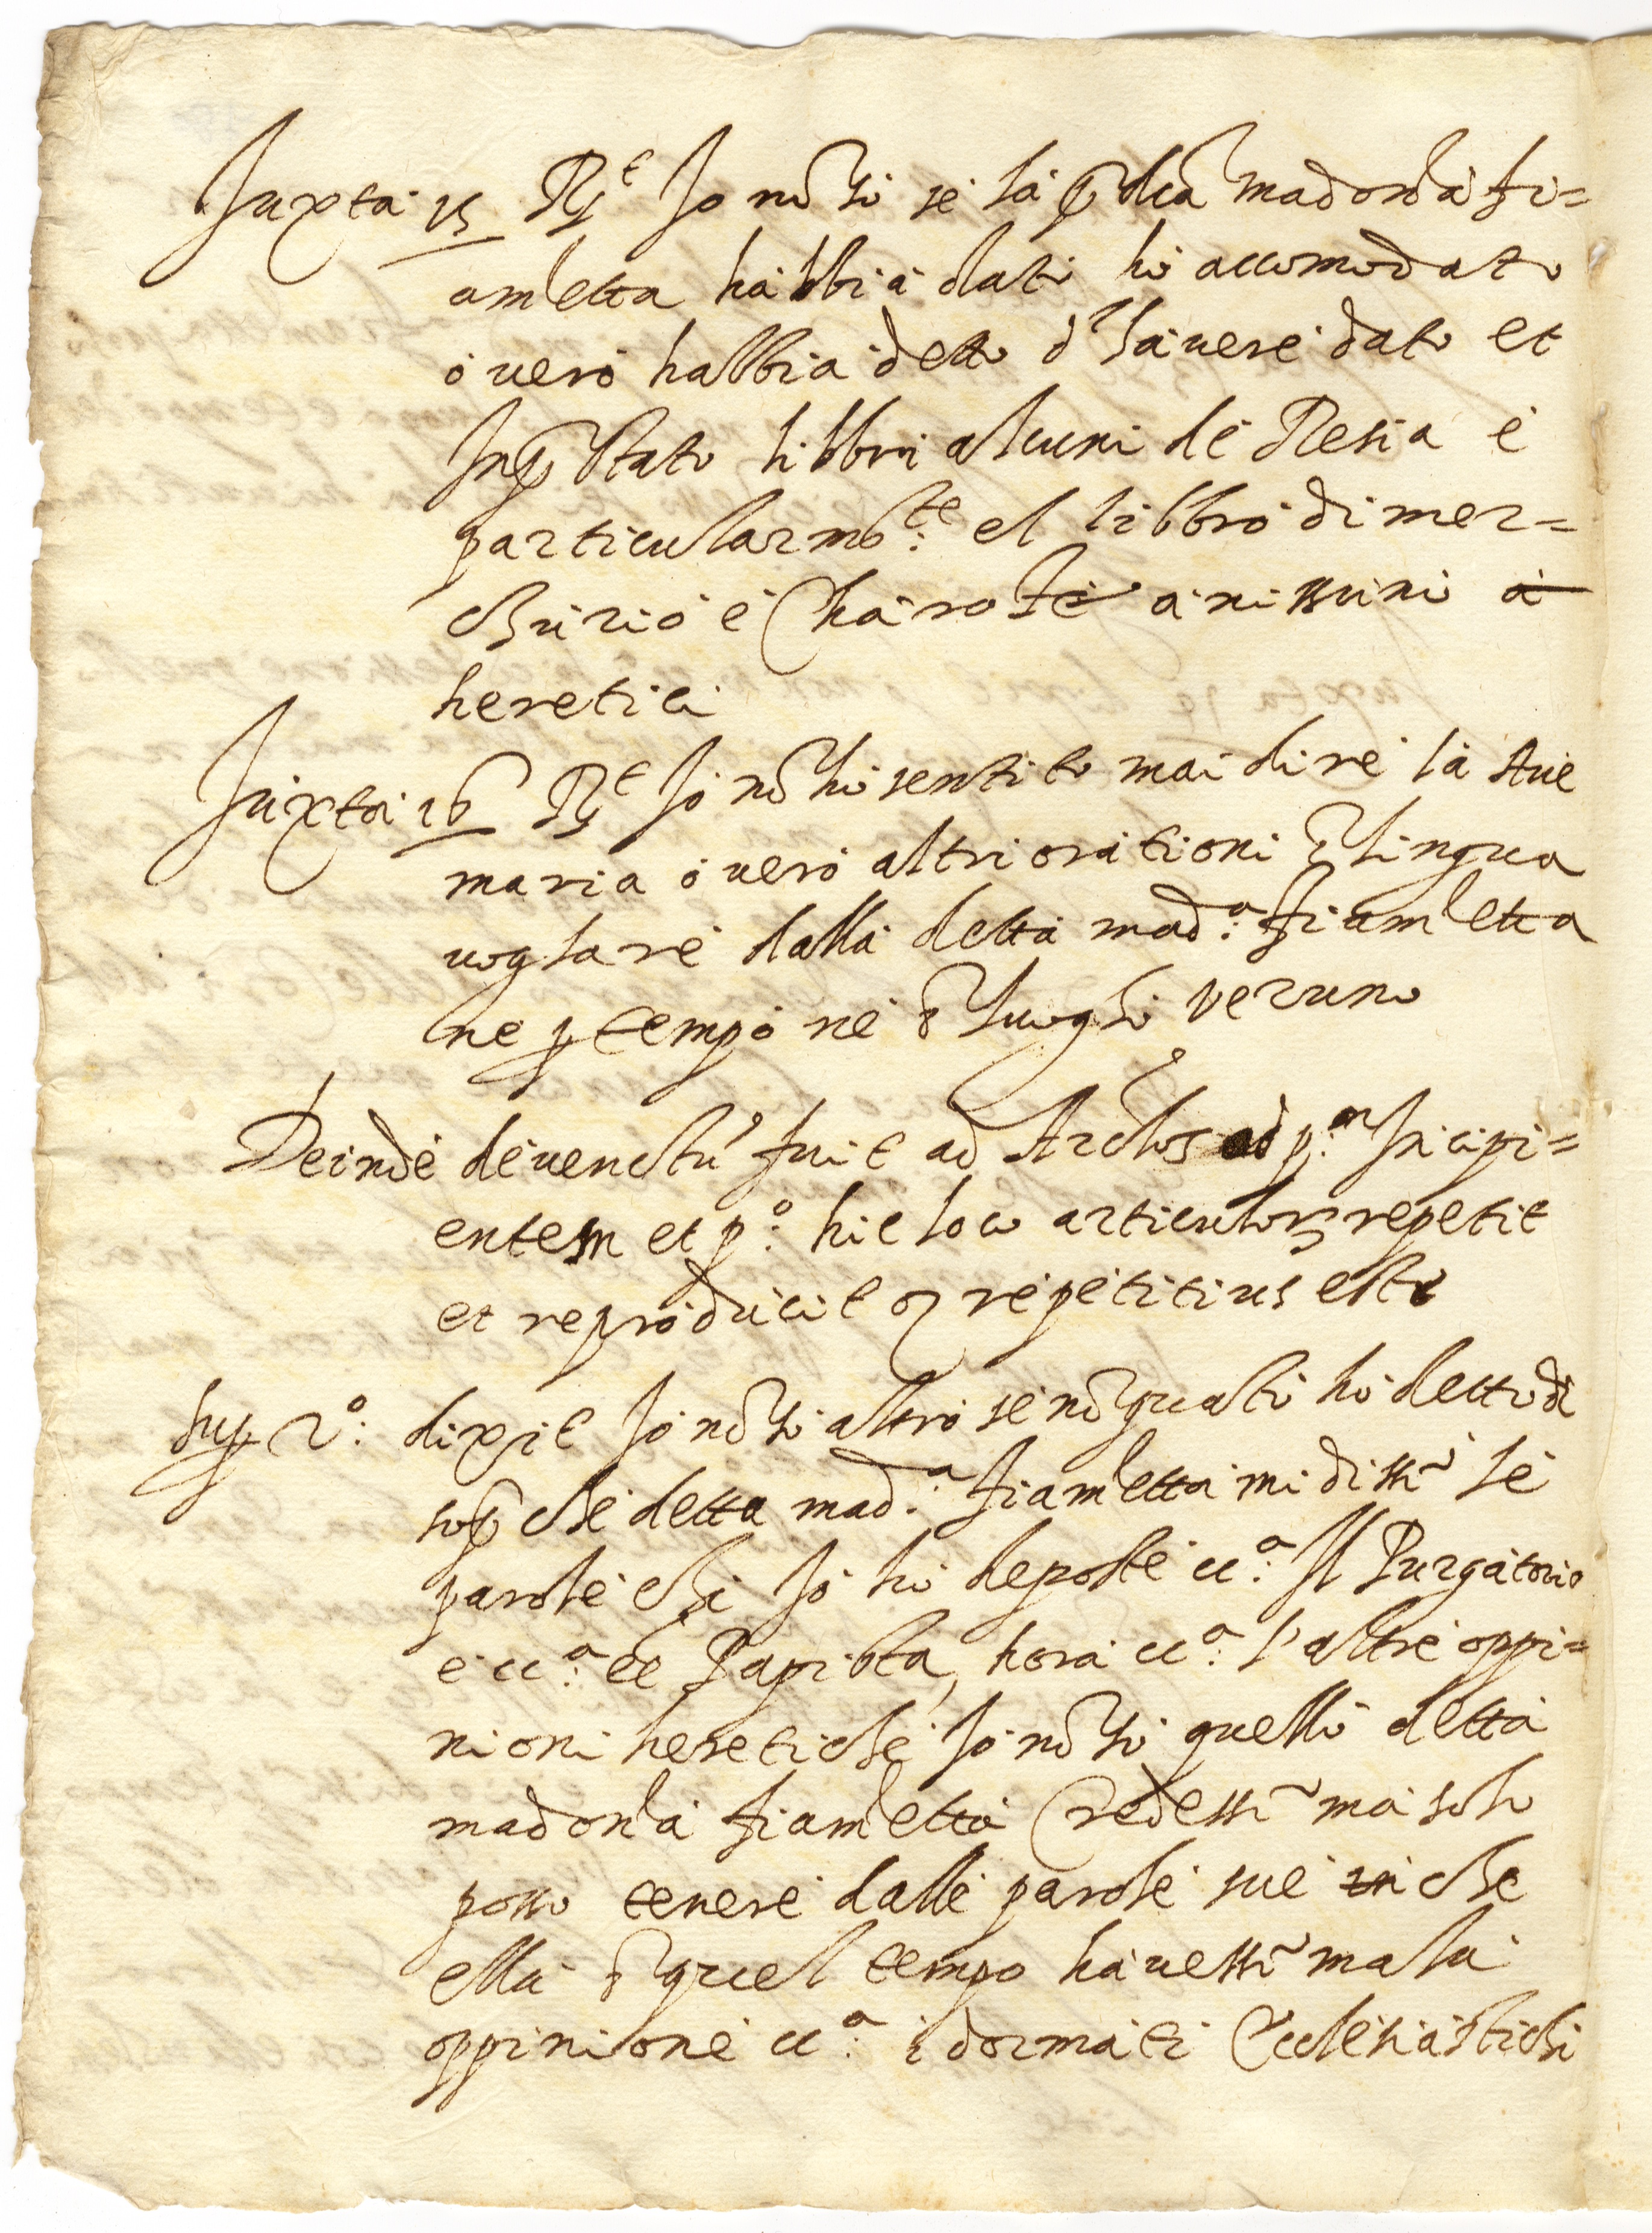 Juxta 15 Rt Jo nõ so se la p̃dca madonna fi=
ametta habbia dato hò accomodato
ò vero habbia detto d'havere dato et
Inp̃stato libbri alcuni de Resia è
particularmte: el libbro di mer=
churio è Charote a nissuni a
heretici
Juxta 16 Rt Jo nõ hò sentito mai dire la Ave
maria ò vero altri orationi ĩ lingua
voglare dalla detta mada: fiametta
ne p tempo ne ĩ luogho veruno
Deinde deventũ fuit ad Arclos ad p:am Incipi=
entem et po: hic loco articulos repetit
et reproducit repetitius esto
Sup 2o: dixit Jo nõ so altro se nõ quato hò detto di
sop̃ che detta mada: fiametta mi dissi le
parole che Jo hò deposte cca: Il Purgatorio
è cca: el Papista, hora cca: l'altre oppi=
nioni heretiche Jo nõ so quello detta
madonna fiametta Credessi ma solo
posso tenere dalle parole sue che
ella ĩ quel tempo havessi mala
oppinione cca: i dormati Ecclesiastichi